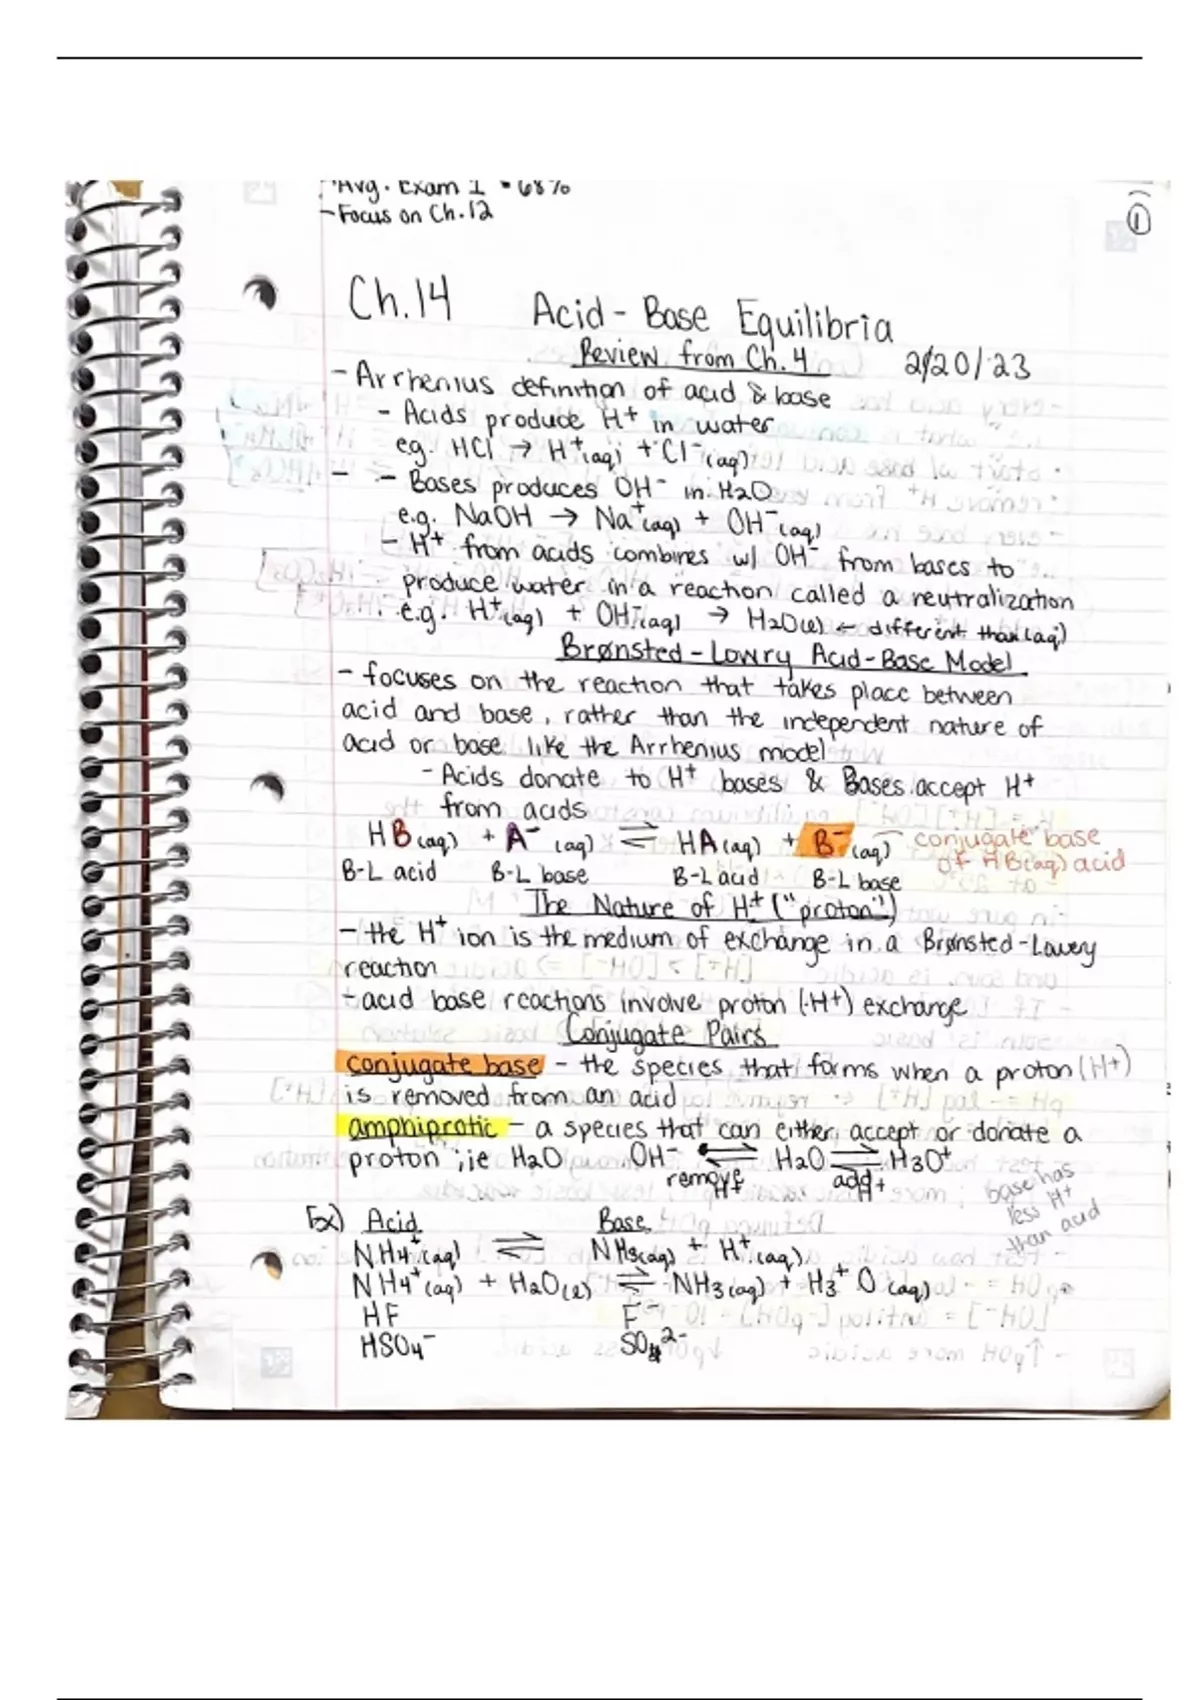 Avg. Exam 1 • 68%
- Focus on Ch.12
1
Ch.14 Acid-Base Equilibria
Review from Ch.4 2/20/23
- Arrhenius definition of acid & base
- Acids produce H+ in water
eg. HCl → H+(aq) + Cl-(aq)
- - Bases produces OH- in H2O
e.g. NaOH → Na+(aq) + OH-(aq)
- H+ from acids combines w/ OH- from bases to
produce water in a reaction called a neutralization
e.g. H+(aq) + OH-(aq) → H2O(l) ← different than (aq)
Brønsted-Lowry Acid-Base Model
- focuses on the reaction that takes place between
acid and base, rather than the independent nature of
acid or base like the Arrhenius model
- Acids donate to H+ bases & Bases accept H+
from acids
HB(aq) + A-(aq) ⇌ HA(aq) + B-(aq) conjugate base
of HB(aq) acid
B-L acid B-L base B-L acid B-L base
The Nature of H+ ("proton")
- the H+ ion is the medium of exchange in a Brønsted-Lowry
reaction
- acid base reactions involve proton (H+) exchange
Conjugate Pairs
conjugate base - the species that forms when a proton (H+)
is removed from an acid
amphiprotic - a species that can either accept or donate a
proton ; ie H2O OH- ⇌ H2O ⇌ H3O+
remove H+ add H+
base has
less H+
than acid
Ex) Acid Base
NH4+(aq) ⇌ NH3(aq) + H+(aq)
NH4+(aq) + H2O(l) ⇌ NH3(aq) + H3+O(aq)
HF F-
HSO4- SO4 2-